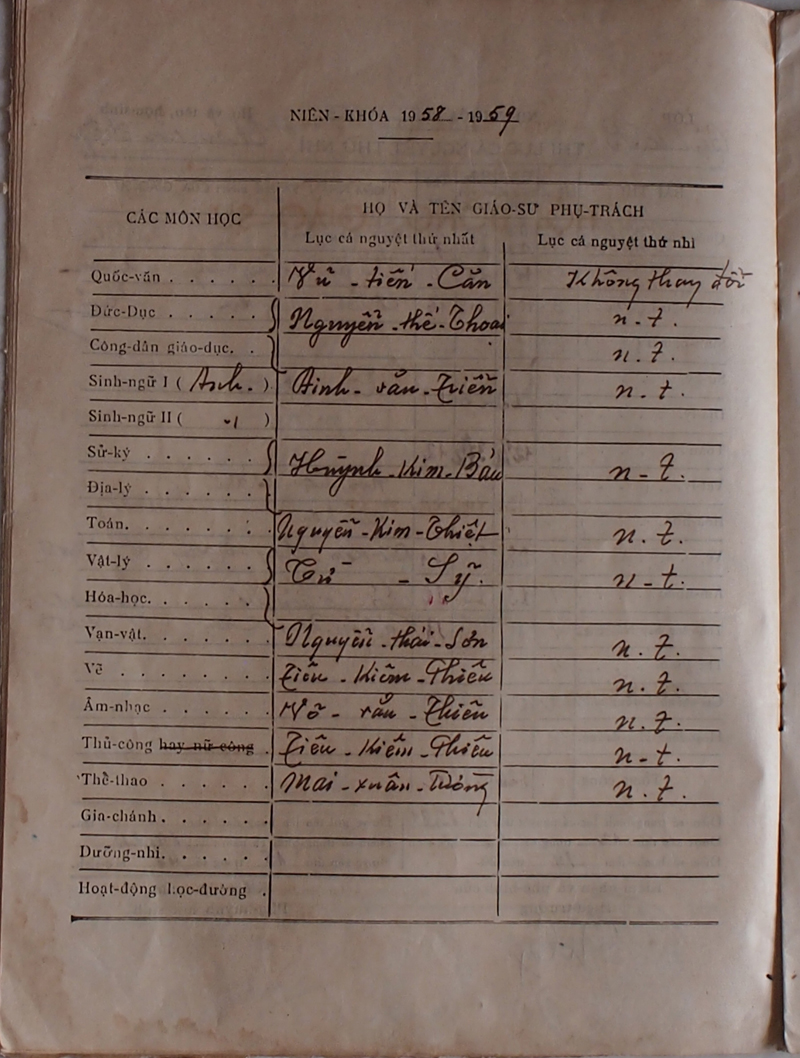 NIÊN - KHÓA 1958 - 1959
CÁC MÔN HỌC
HỌ VÀ TÊN GIÁO-SƯ PHỤ-TRÁCH
Lục cá nguyệt thứ nhất
Lục cá nguyệt thứ nhì
Quốc-văn . . . . . . Vũ - tiến - Căn Không thay đổi
Đức-Dục . . . . . Nguyễn - thế - Thoại n-t.
Công-dân giáo-dục. . n.t.
Sinh-ngữ I ( Anh. ) Đinh - văn - Triển n-t.
Sinh-ngữ II ( )
Sử-ký . . . . . . Huỳnh - Kim - Bảu n-t.
Địa-lý . . . . . .
Toán. . . . . . . Nguyễn - Kim - Thiệt n.t.
Vật-lý . . . . . . Từ - Sỹ. n-t.
Hóa-học. . . . . .
Vạn-vật. . . . . . Nguyễn - thái - Sơn n.t.
Vẽ . . . . . . . Kiêm n.t.
Âm-nhạc . . . . . . Võ - văn n.t.
Thủ-công hay nữ công . n-t.
Thể-thao . . . . . . Mai - xuân n.t.
Gia-chánh . . . . . .
Dưỡng-nhi. . . . . .
Hoạt-động học-đường .